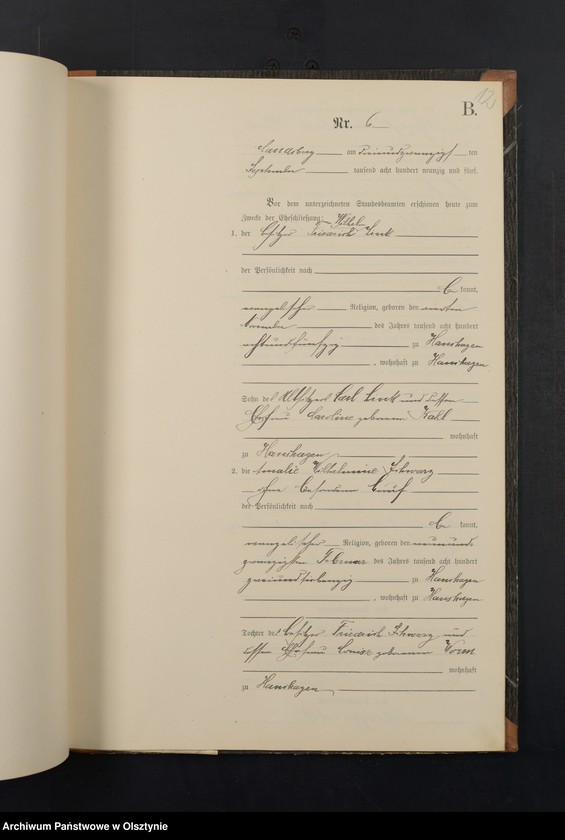 12
B.
Nr. 6
Landsberg am dreiundzwanzigsten
September tausend acht hundert neunzig und fünf.
Vor dem unterzeichneten Standesbeamten erschienen heute zum
Zwecke der Eheschließung:
1. der Besitzer Friedrich Wilhelm
der Persönlichkeit nach
be kannt,
evangelischer Religion, geboren den vierten
November des Jahres tausend acht hundert
achtundfünfzig zu Hanshagen
, wohnhaft zu Hanshagen
Sohn des Altsitzers Carl und dessen
Ehefrau Caroline geborenen
wohnhaft
zu Hanshagen
2. die Amalie Wilhelmine Schwarz
ohne besonderen Beruf
der Persönlichkeit nach
be kannt,
evangelischer Religion, geboren den neunund-
zwanzigsten Februar des Jahres tausend acht hundert
zweiundsiebenzig zu Hanshagen
, wohnhaft zu Hanshagen
Tochter des Besitzer Friedrich Schwarz und
dessen Ehefrau Louise geborenen
wohnhaft
zu Hanshagen
Archiwum Państwowe w Olsztynie